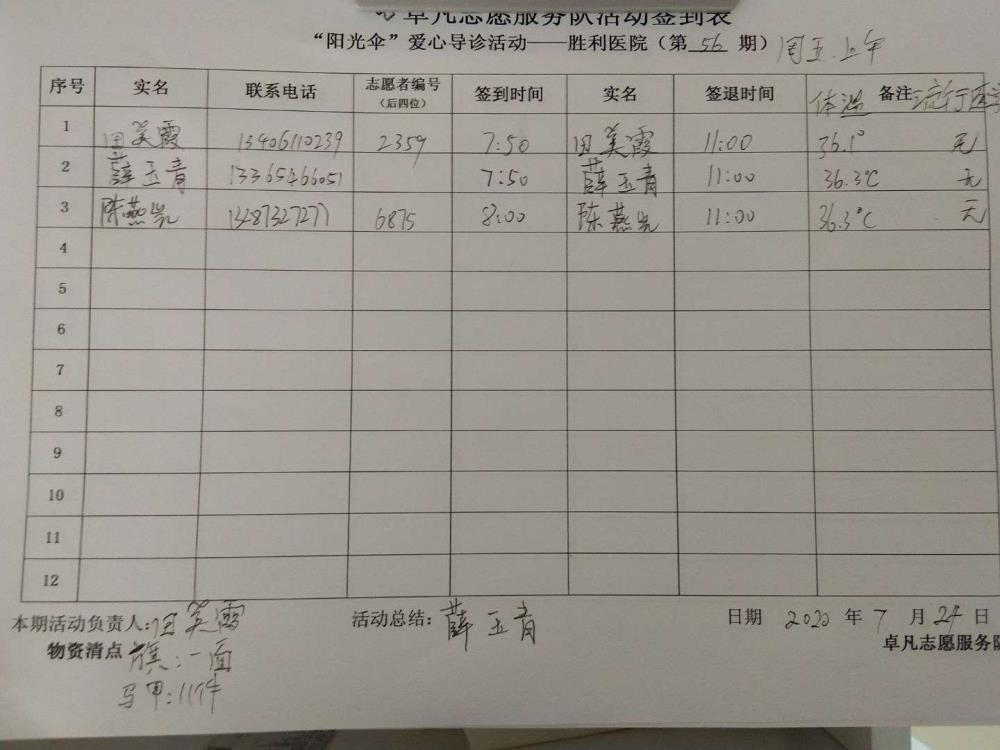 卓凡志愿服务队活动签到表
“阳光伞”爱心导诊活动——胜利医院（第 56 期）周五上午
序号 实名 联系电话 志愿者编号（后四位） 签到时间 实名 签退时间 体温 备注 流行
1 田美霞 13406110239 2359 7:50 田美霞 11:00 36.1° 无
2 薛玉青 13365466051 7:50 薛玉青 11:00 36.3℃ 无
3 陈燕 13287327277 6875 8:00 陈燕 11:00 36.3℃ 无
4
5
6
7
8
9
10
11
12
本期活动负责人:田美霞 活动总结:薛玉青 日期 2020 年 7 月 24 日
物资清点 旗:一面 卓凡志愿服务队
马甲:11件